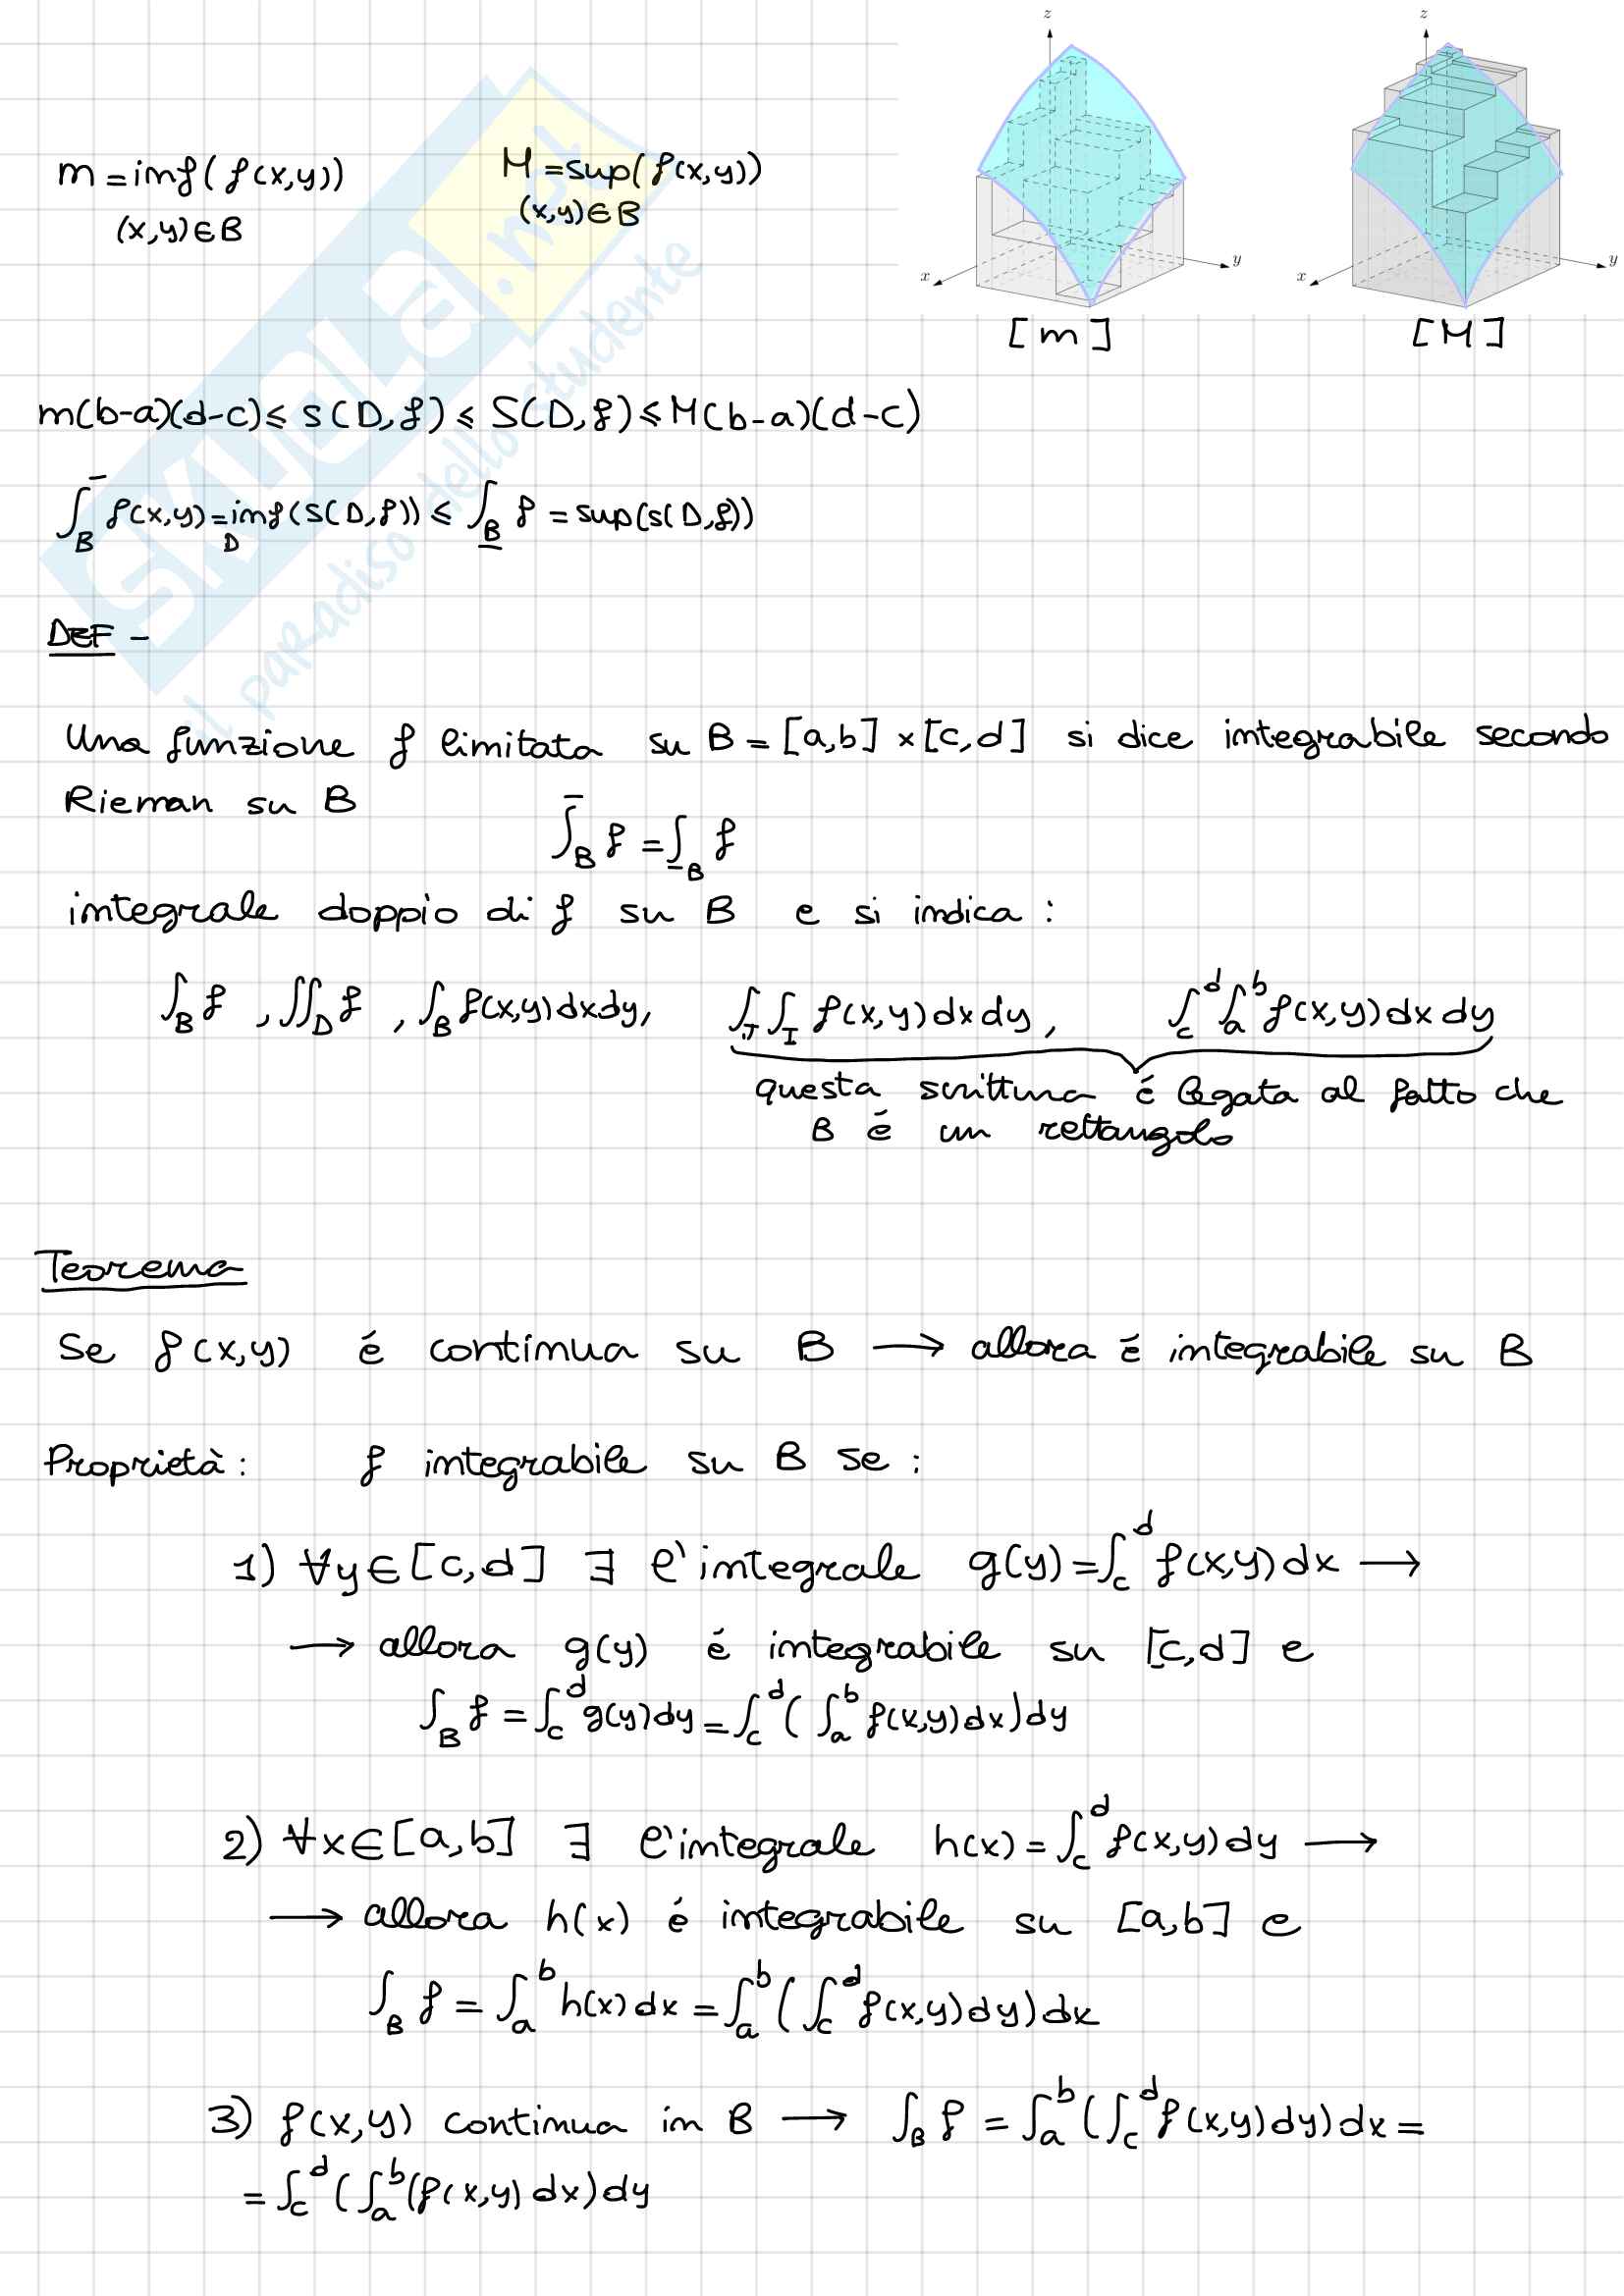 z
z
m = inf( f(x,y))
M = sup( f(x,y))
(x,y) ∈ B
(x,y) ∈ B
x
y
x
y
[m]
[M]
SKUOLA.net
il paradiso dello studente
m(b-a)(d-c) ⩽ s(D,f) ⩽ S(D,f) ⩽ M(b-a)(d-c)
∫̅_B f(x,y) = inf_D (S(D,f)) ⩽ ∫_B̲ f = sup(s(D,f))
DEF -
Una funzione f limitata su B = [a,b] × [c,d] si dice integrabile secondo
Rieman su B
∫̅_B f = ∫̲_B f
integrale doppio di f su B e si indica :
∫_B f , ∬_D f , ∫_B f(x,y) dxdy, ∫_J ∫_I f(x,y) dx dy , ∫_c^d ∫_a^b f(x,y) dx dy
questa scrittura é legata al fatto che
B é un rettangolo
Teorema
Se f(x,y) é continua su B ⟶ allora é integrabile su B
Proprietà : f integrabile su B se :
1) ∀y ∈ [c,d] ∃ l'integrale g(y) = ∫_c^d f(x,y) dx ⟶
⟶ allora g(y) é integrabile su [c,d] e
∫_B f = ∫_c^d g(y) dy = ∫_c^d ( ∫_a^b f(x,y) dx ) dy
2) ∀x ∈ [a,b] ∃ l'integrale h(x) = ∫_c^d f(x,y) dy ⟶
⟶ allora h(x) é integrabile su [a,b] e
∫_B f = ∫_a^b h(x) dx = ∫_a^b ( ∫_c^d f(x,y) dy ) dx
3) f(x,y) continua in B ⟶ ∫_B f = ∫_a^b ( ∫_c^d f(x,y) dy ) dx =
= ∫_c^d ( ∫_a^b (f(x,y) dx ) dy